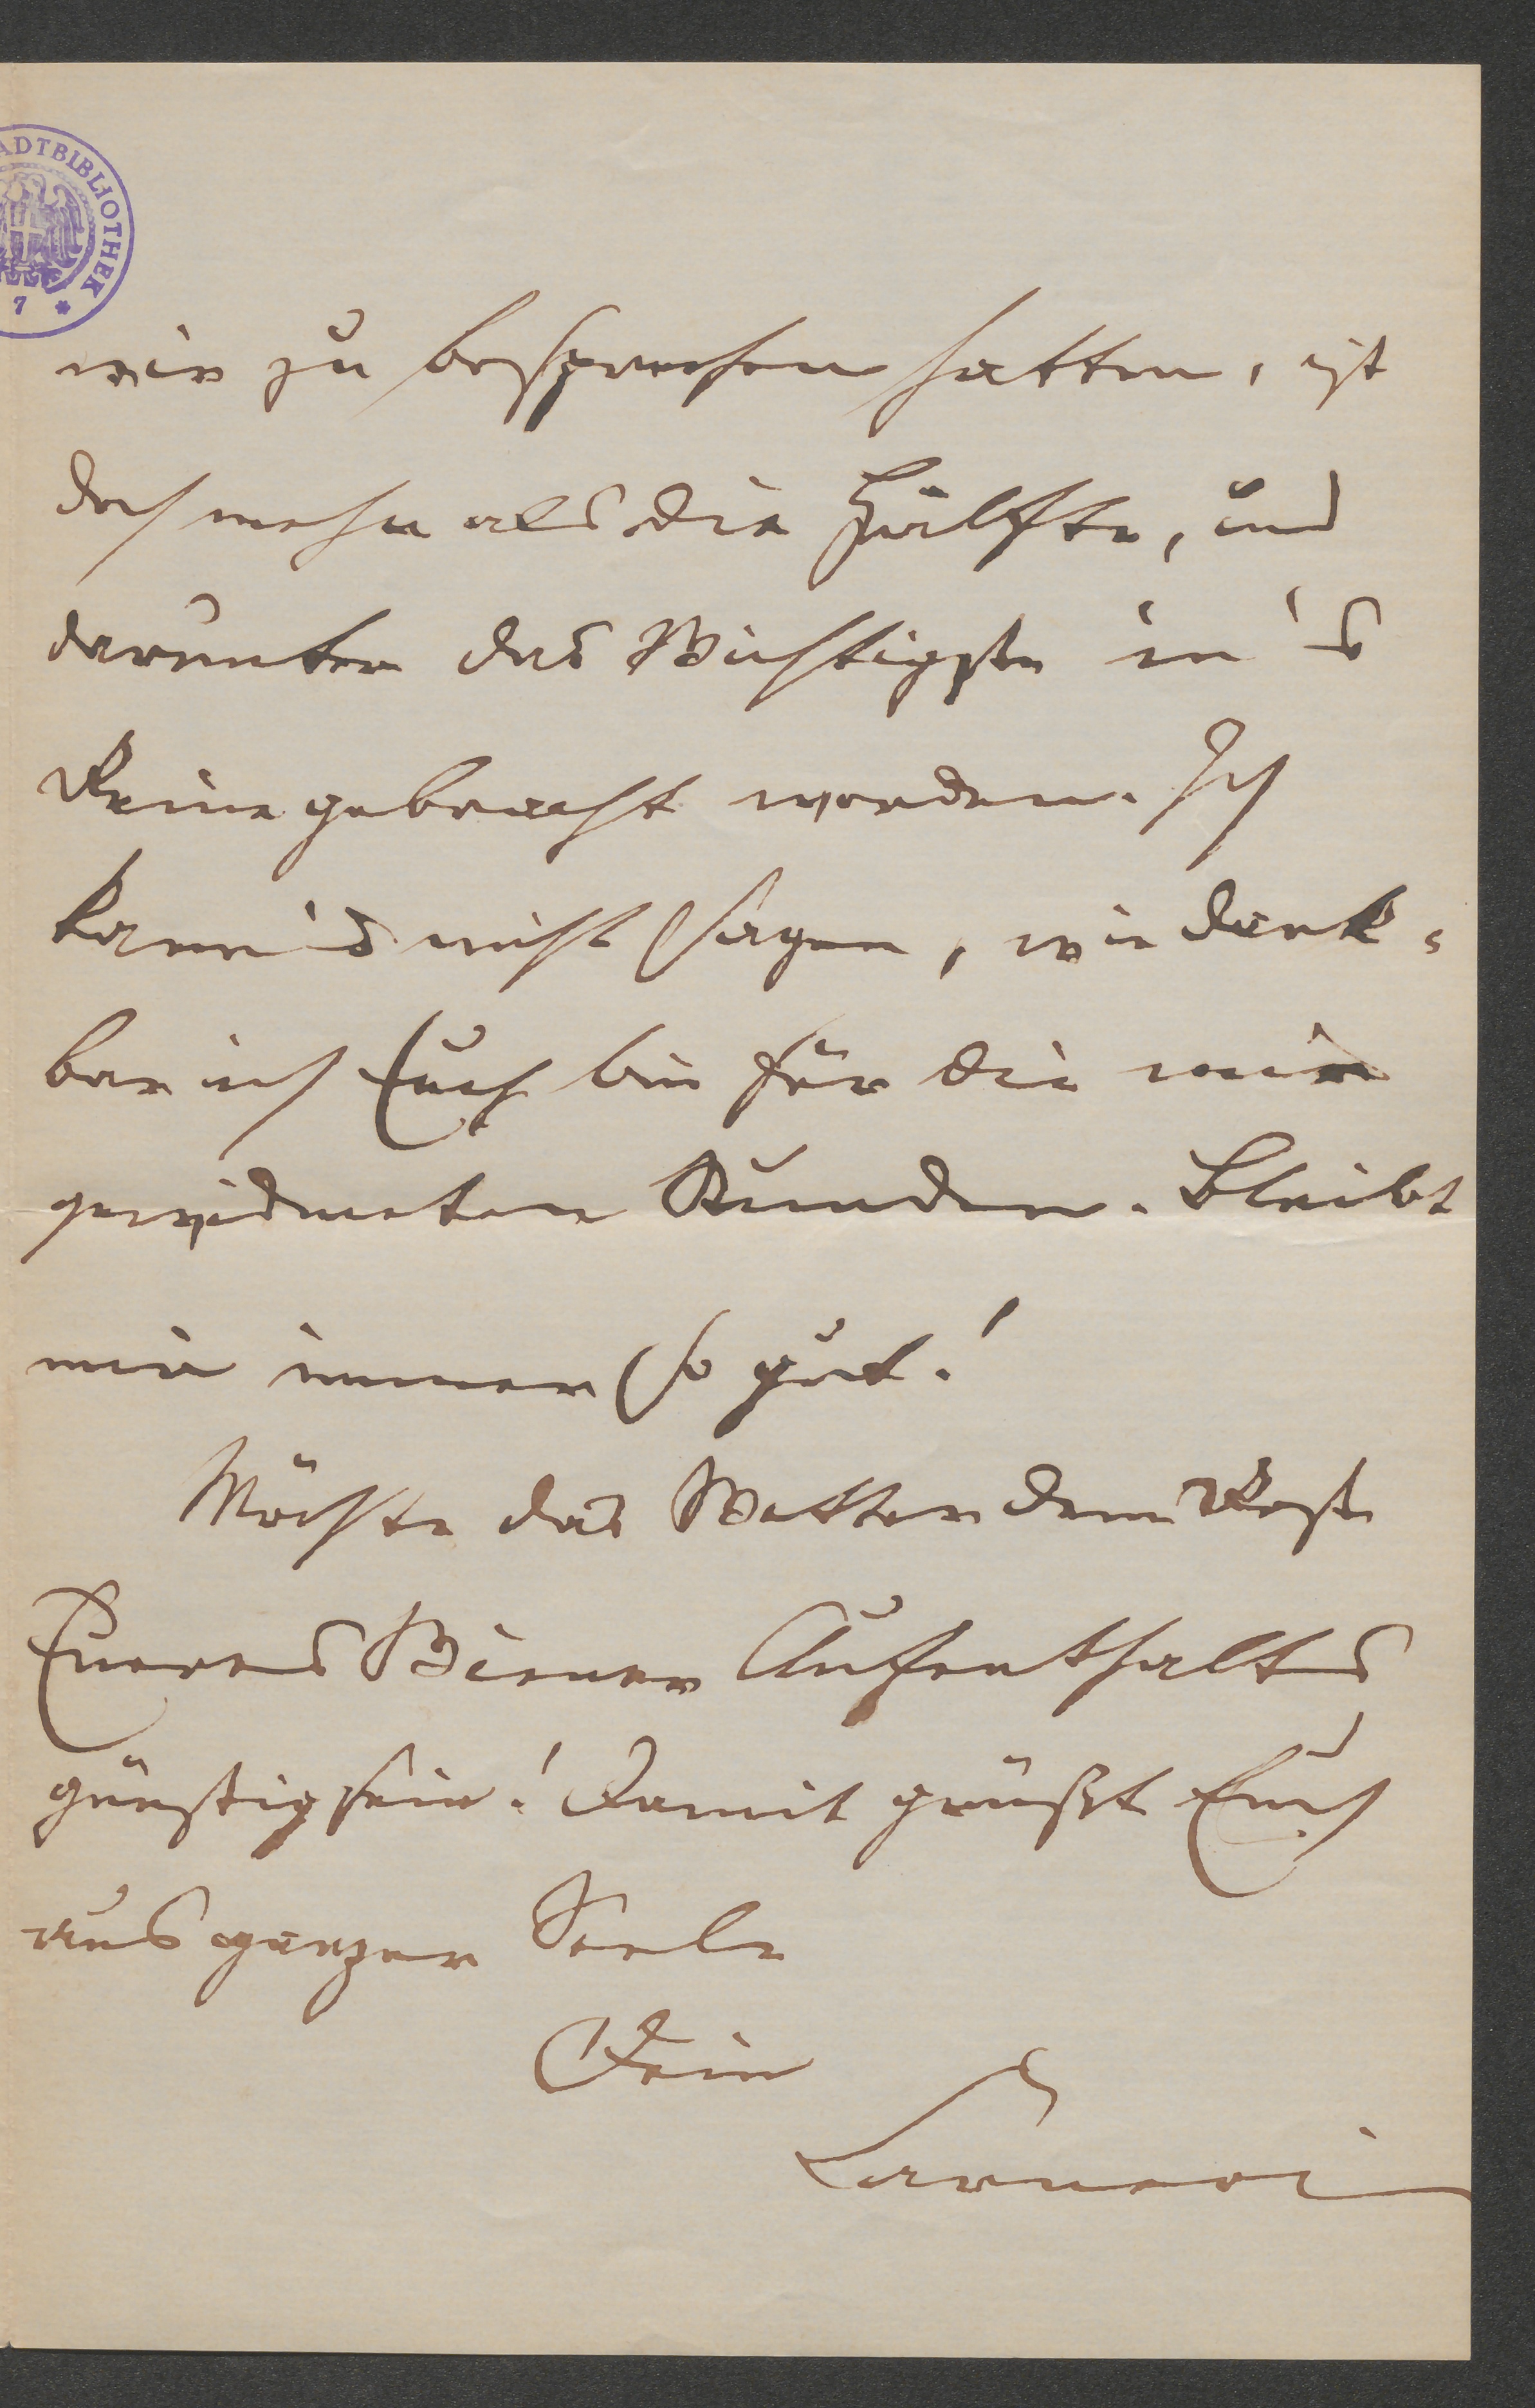 ADTBIBLIOTHEK
7 *
wir zu besprechen hatten, ist
doch mehr als die Hälfte, und
darunter das Wichtigste in's
Reine gebracht worden. Ich
kann's nicht sagen, wie dank-
bar ich Euch bin für die mir
gewidmeten Stunden. Bleibt
mir immer so gut!
Möchte das Wetter dem Rest
Eueres Wiener Aufenthalts
günstig sein! Damit grüßt Euch
aus ganzer Seele
Dein
Carneri